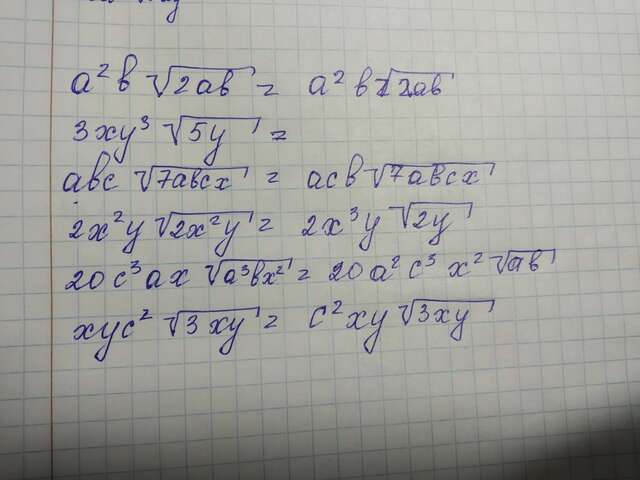 a²b√2ab = a²b√2ab
3xy³√5y =
abc√7abcx = acb√7abcx
2x²y√2x²y = 2x³y√2y
20c³ax√a³bx² = 20a²c³x²√ab
xyc²√3xy = c²xy√3xy